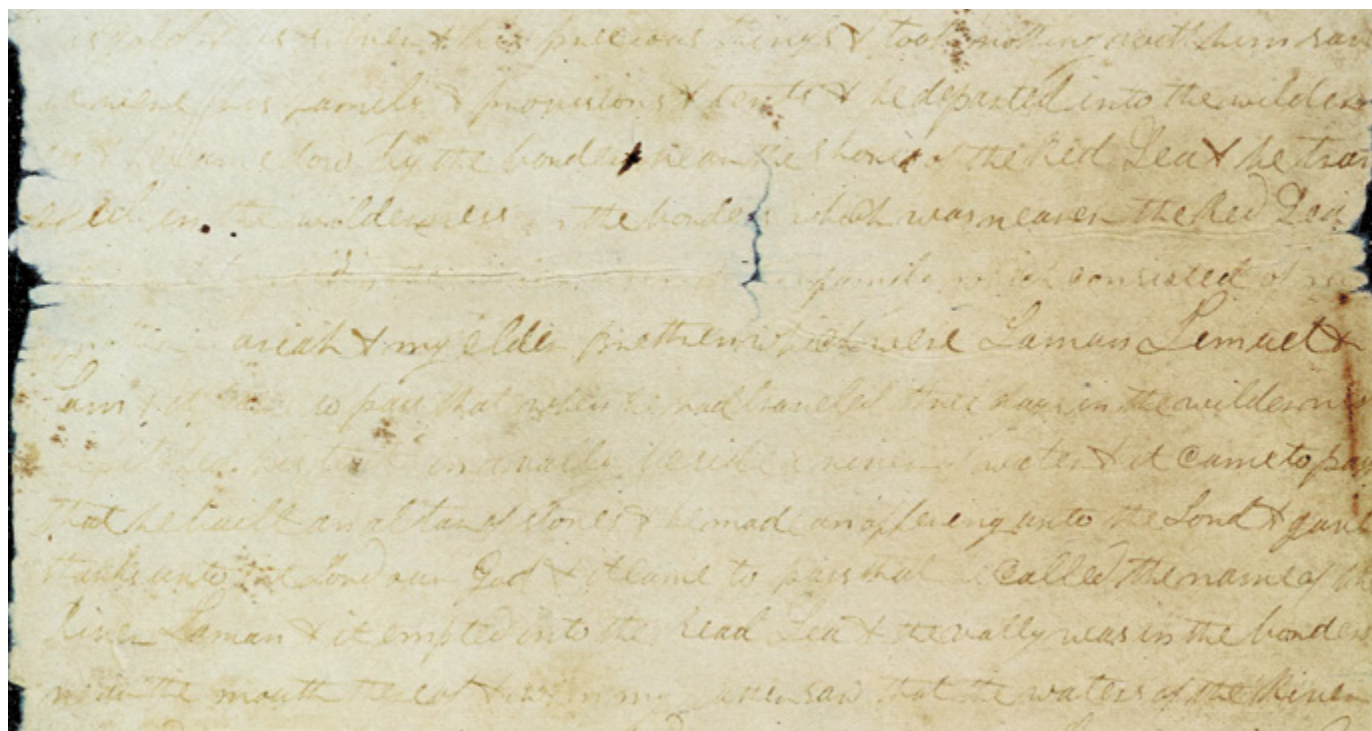 his gold & his silver & his precious things & took nothing with him sav
& provisions & tents & he departed into the wilder
& he came down by the borders near the shore of the Red Sea & he trav
in the wilderness in the borders which was nearer the Red Sea
family which consisted of
ariah & my elder brethren which were Laman Lemuel &
Sam & it came to pass that when he had traveled three days in the wilderne
his tent in a vally beside a river of water & it came to pass
that he built an altar of stones & he mad an offering unto the Lord & gave
thanks unto the Lord our God & it came to pass that he called the name of the
River Laman & it emptied into the Read Sea & the vally was in the borders
near the mouth thereof & when my father saw that the waters of the River